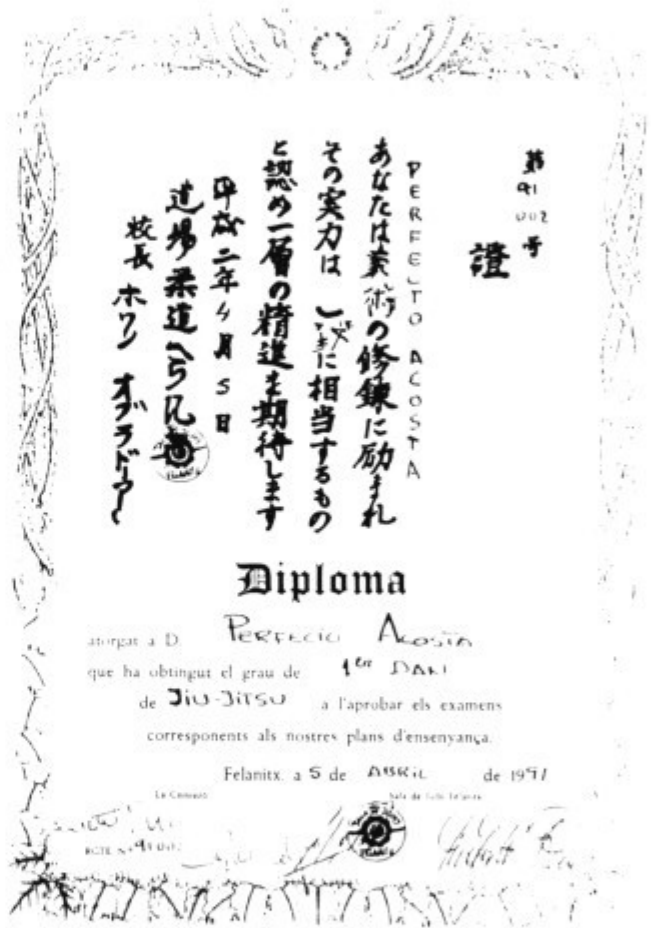 第91002号
證
PERFECTO ACOSTA
あなたは術の修錬に励まれ
その実力はに相当するもの
と認め一層の精進を期待します
平成二年4月5日
道場柔道
校長 ホワン オブラドール
Diploma
atorgat a D. PERFECTO ACOSTA
que ha obtingut el grau de 1er DAN
de JIU-JITSU a l'aprobar els examens
corresponents als nostres plans d'ensenyança.
Felanitx, a 5 de ABRIL de 1991